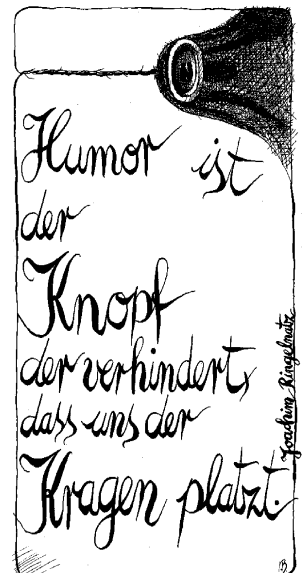 Humor ist
der
Knopf
der verhindert,
dass uns der
Kragen platzt.
Joachim Ringelnatz
B